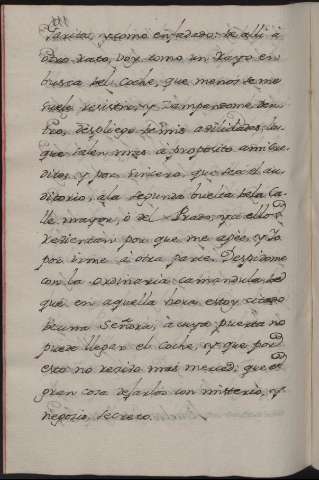 Garcia, y como enfadado: de alli à
otro rato, voy como un Rayo en
busca del Coche, que menos se me
puede resistir, y Zampandome den-
tro, despliego de mis avilidades, las
que salen mas à proposito
y por sincero, que sea el au-
ditorio, à la segunda buelta de la Ca-
lle mayor, ò del Prado, ya ellos
rebientan por que me apée, y Yo
por hirme à otra parte. Despidome
con la ordinaria camandula, de
que en aquella hora estoy citado
de una Señora, à cuya puerta no
puede llegar el Coche, y que por
esto no recivo mas merced; que es
gran cosa dejarlos con misterio, y
negocio, secreto.